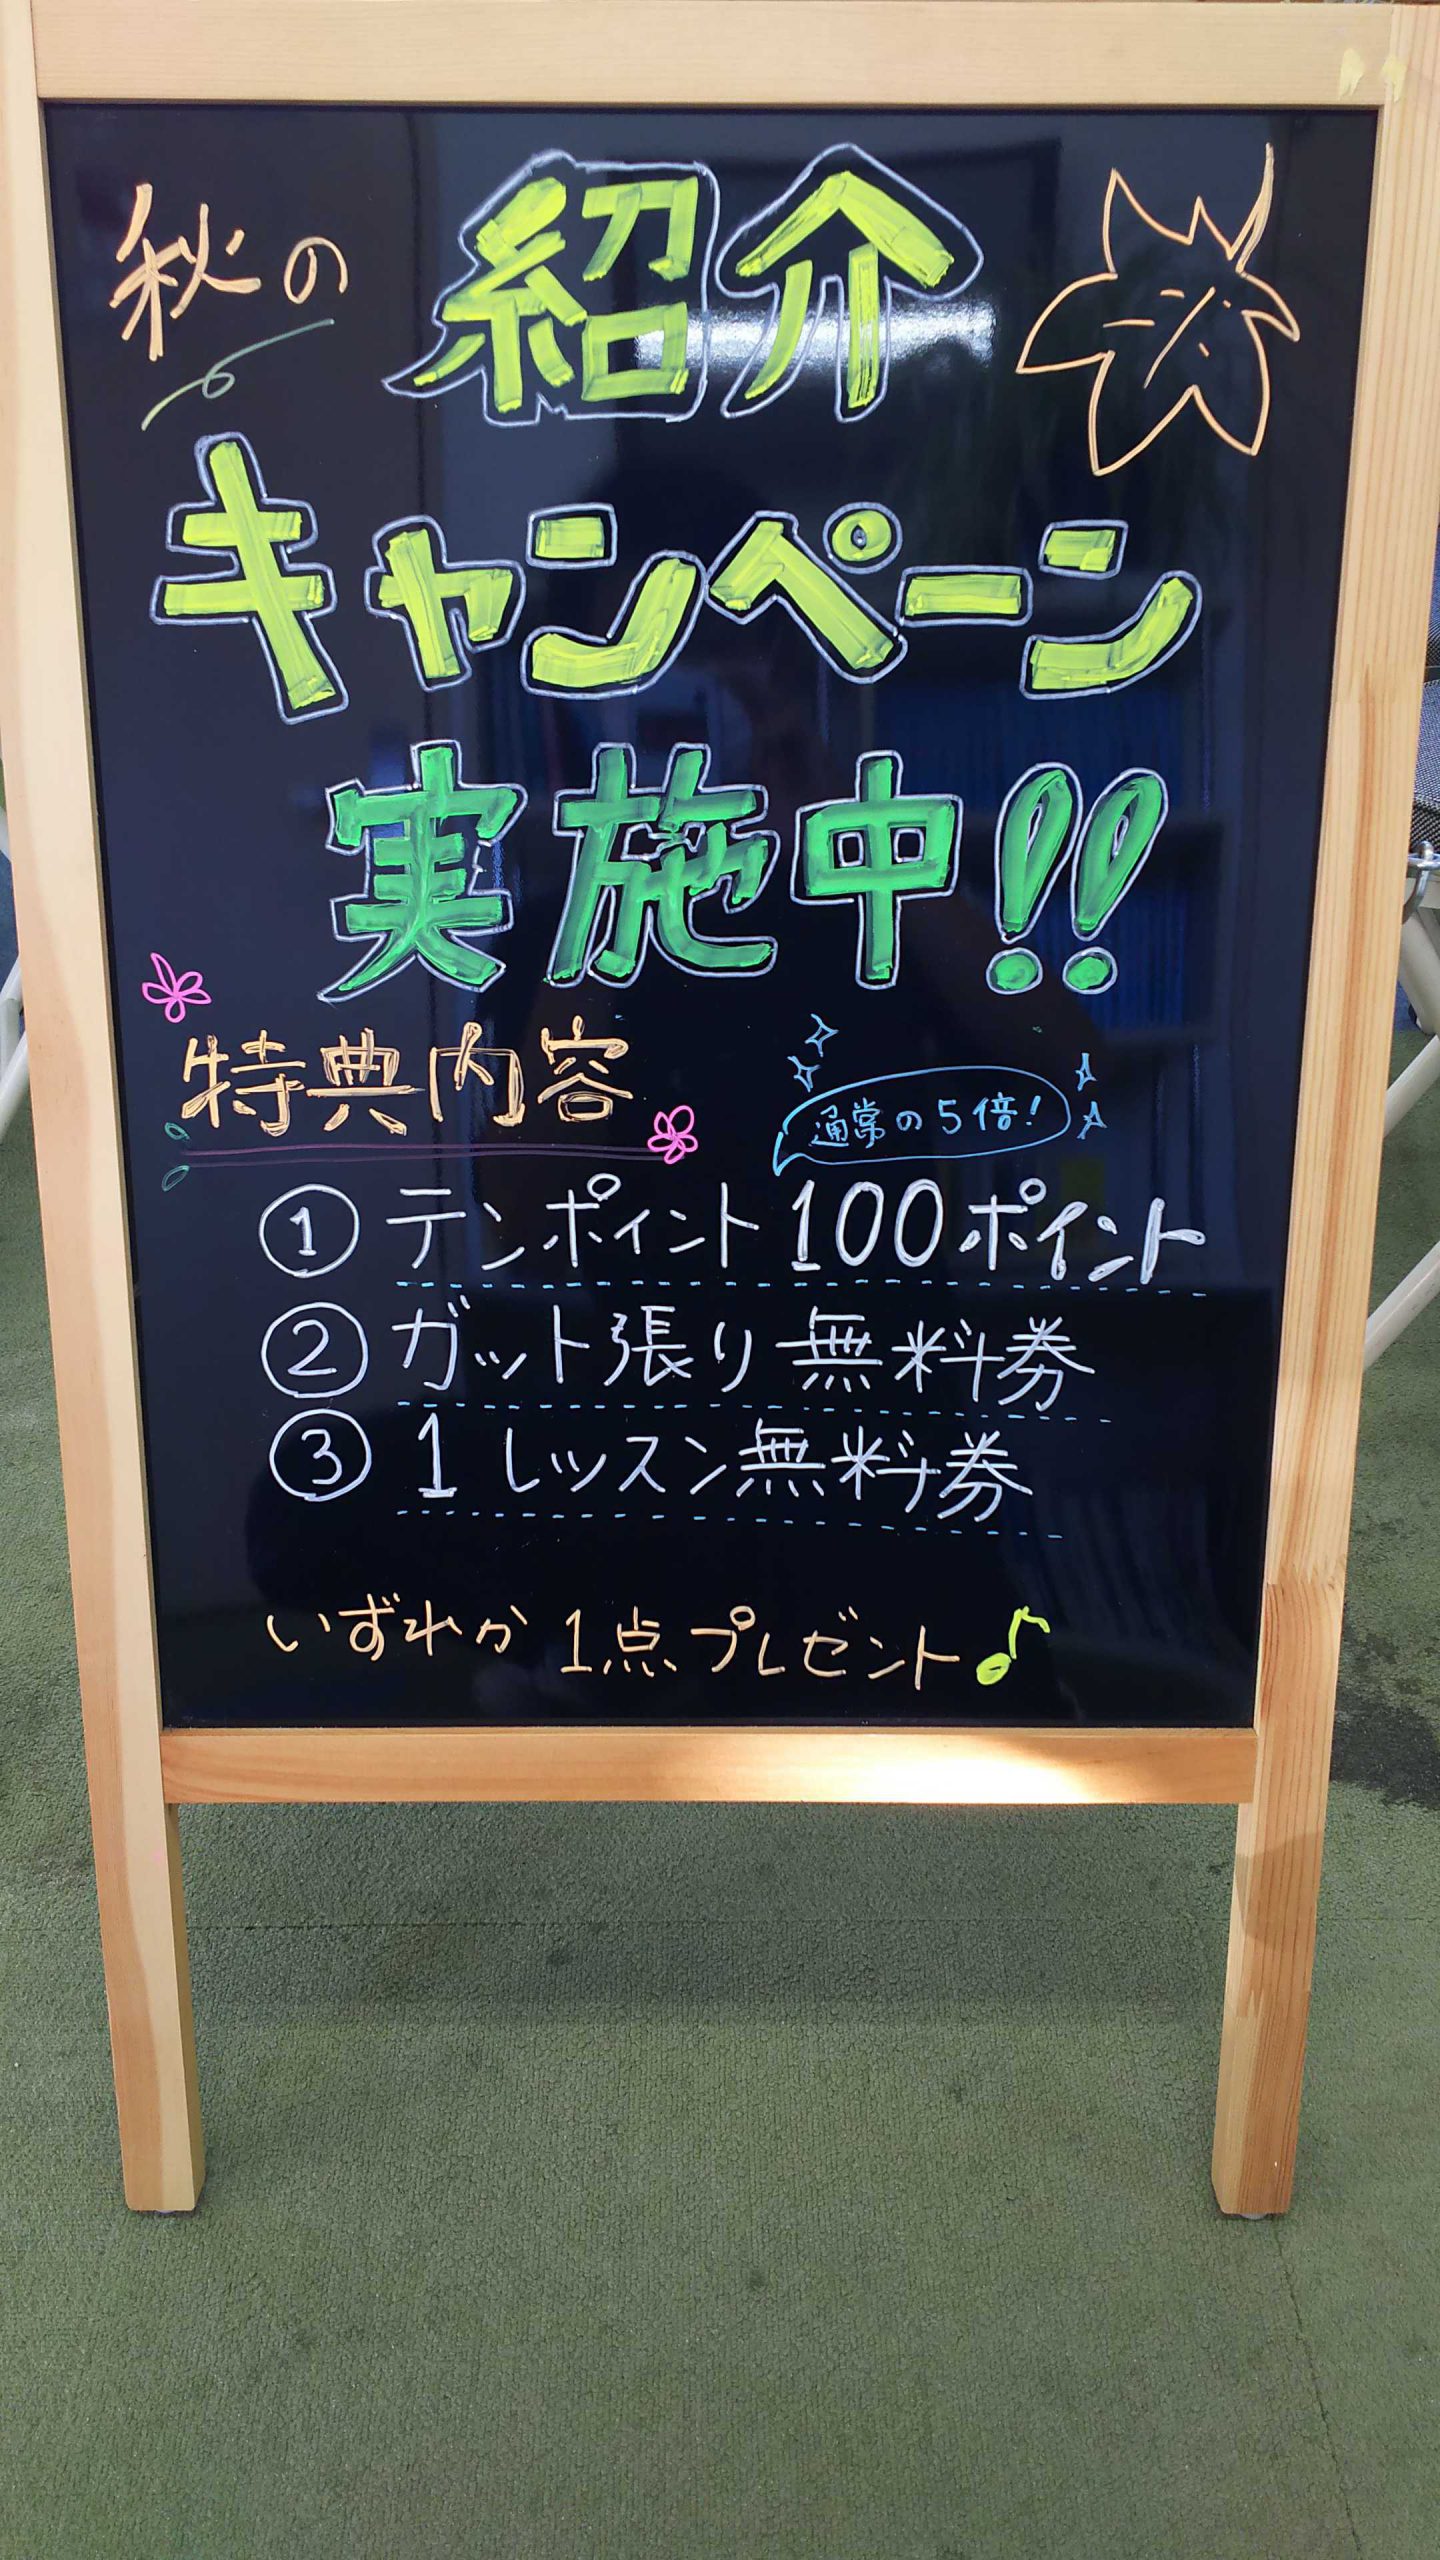 秋の
紹介
キャンペーン
実施中!!
特典内容
通常の5倍!
① テンポイント 100ポイント
② ガット張り無料券
③ 1レッスン無料券
いずれか 1点プレゼント♪